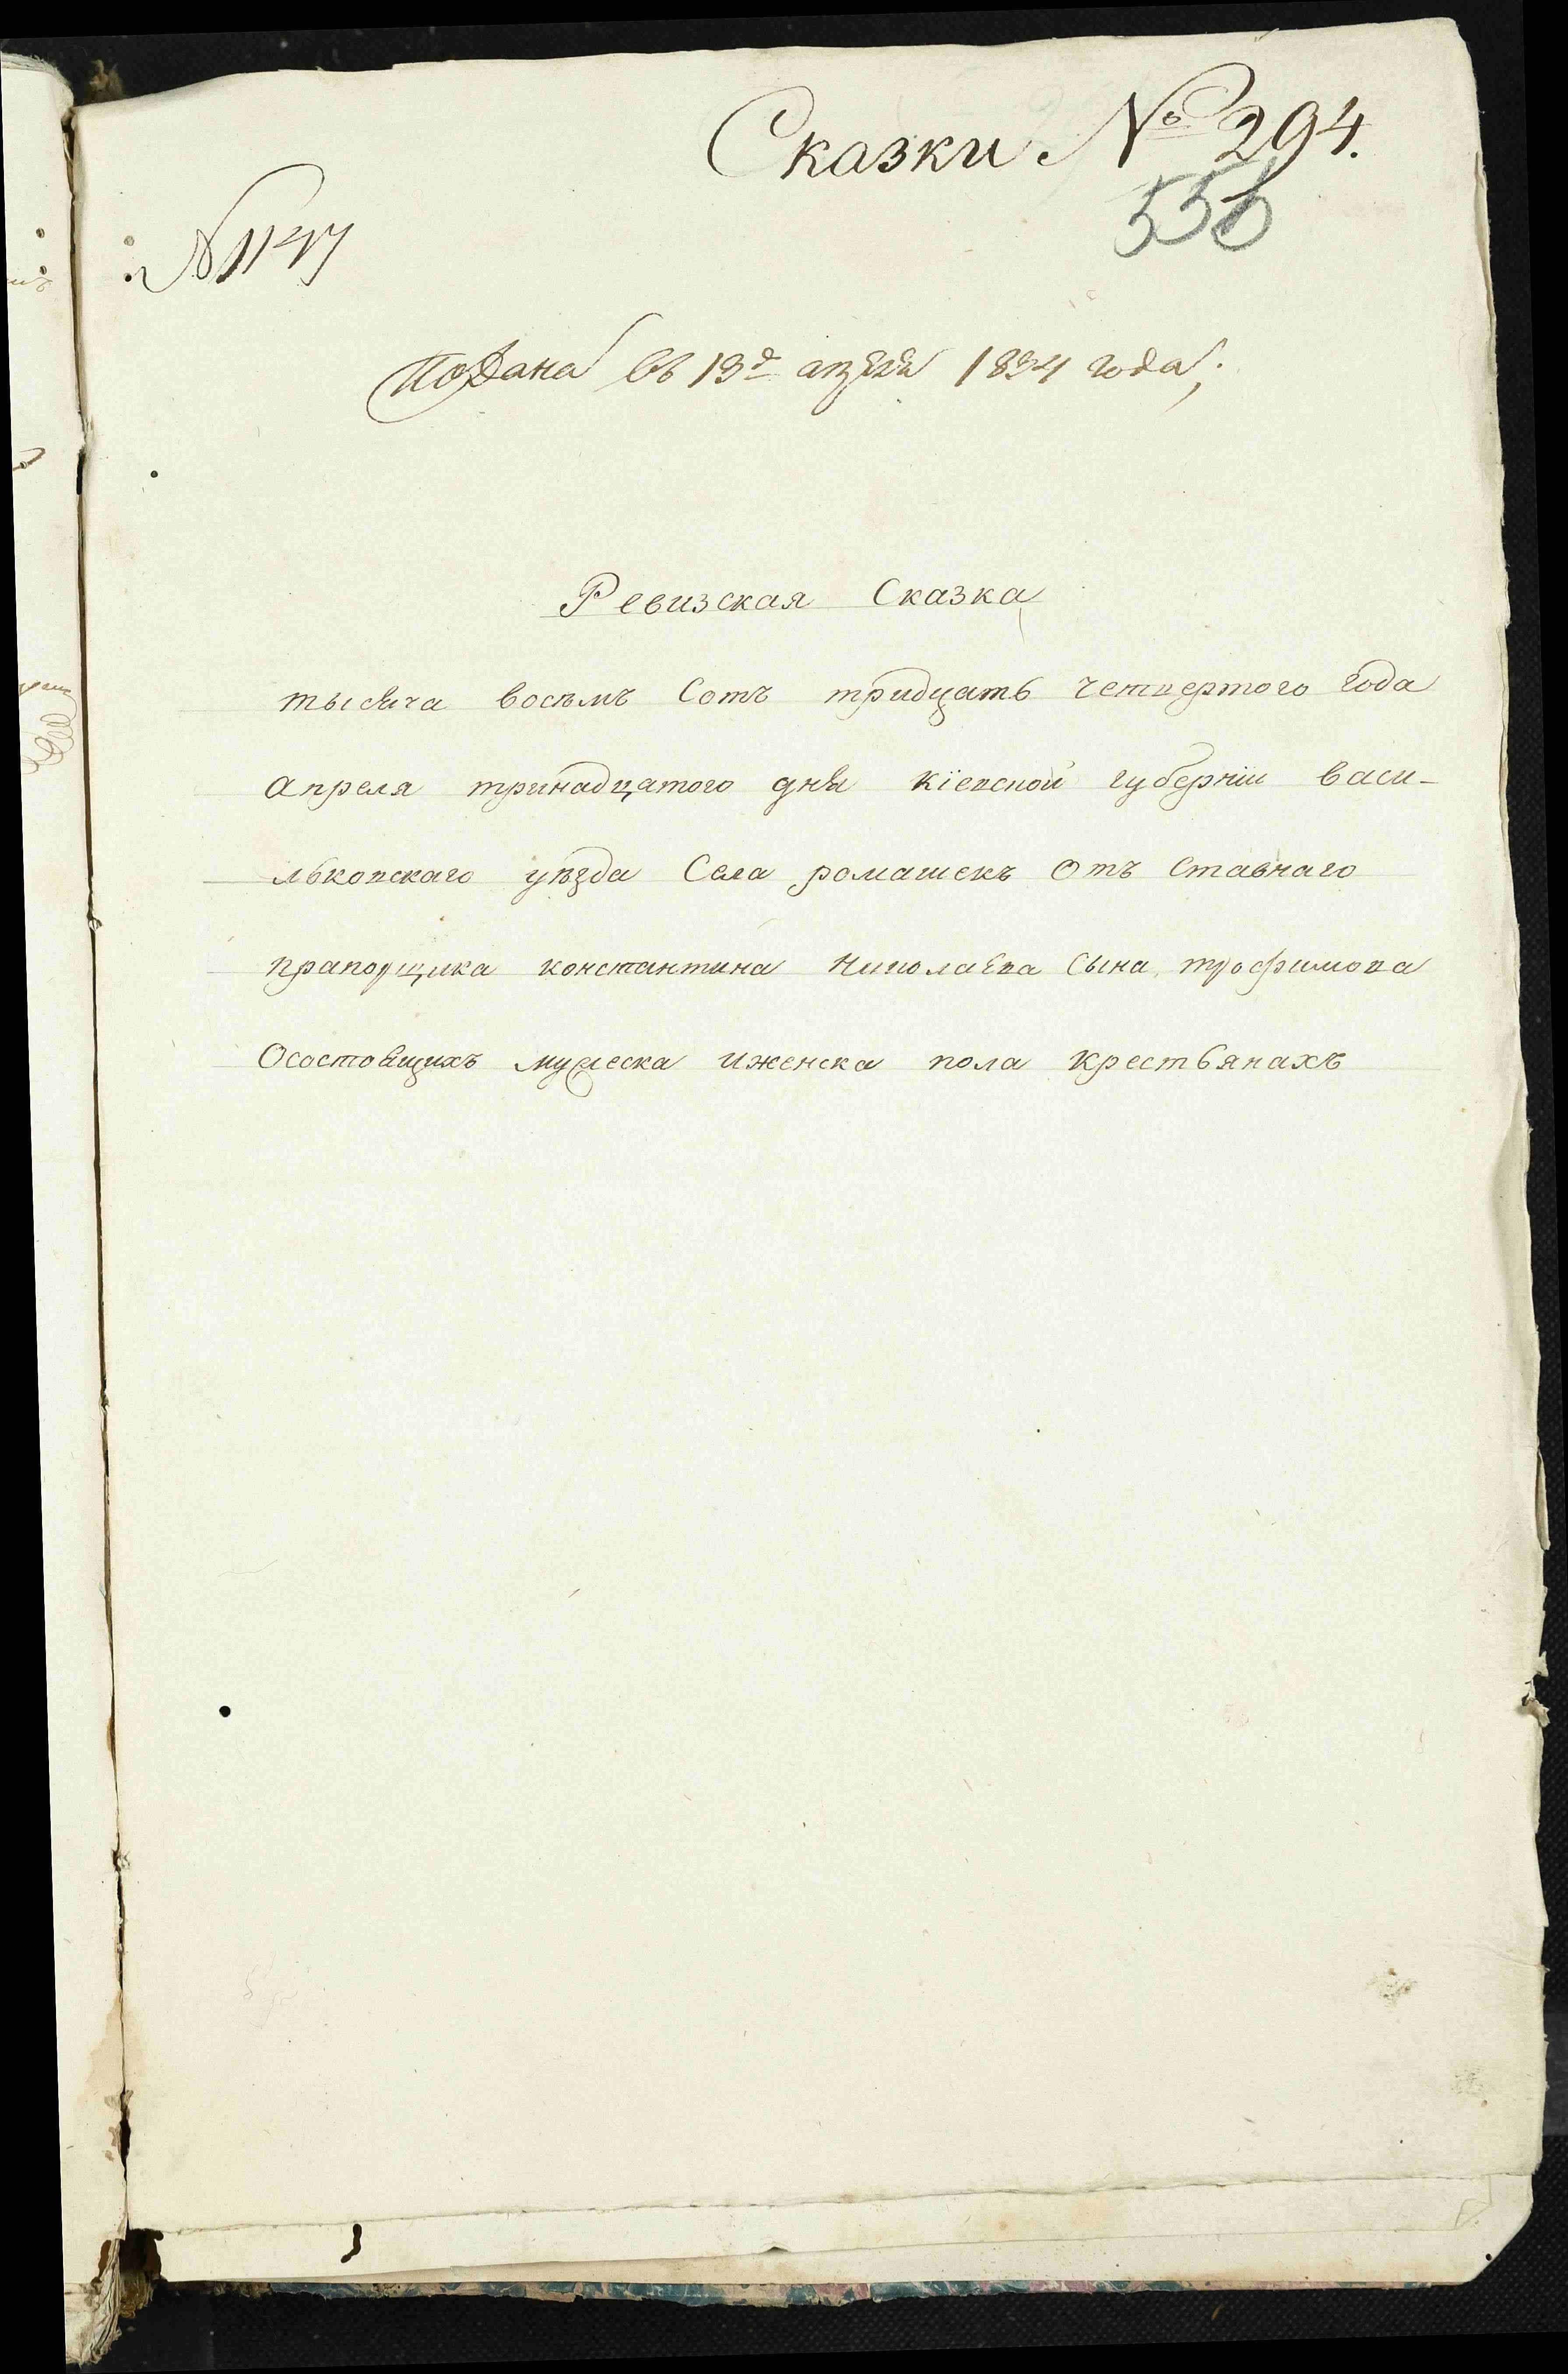 Сказки № 294.
556
№ 1147
Подана въ 13д апреля 1834 года;
Ревизская Сказка
тысяча восьмъ Сотъ тридцать четвертого года
апреля тринадцатого дня кіевской губерніи васи-
льковского уѣзда Села ромашекъ Отъ ставнаго
прапорщика константина николаева Сына трофимова
Осостоящихъ мужеска иженска пола крестьянахъ